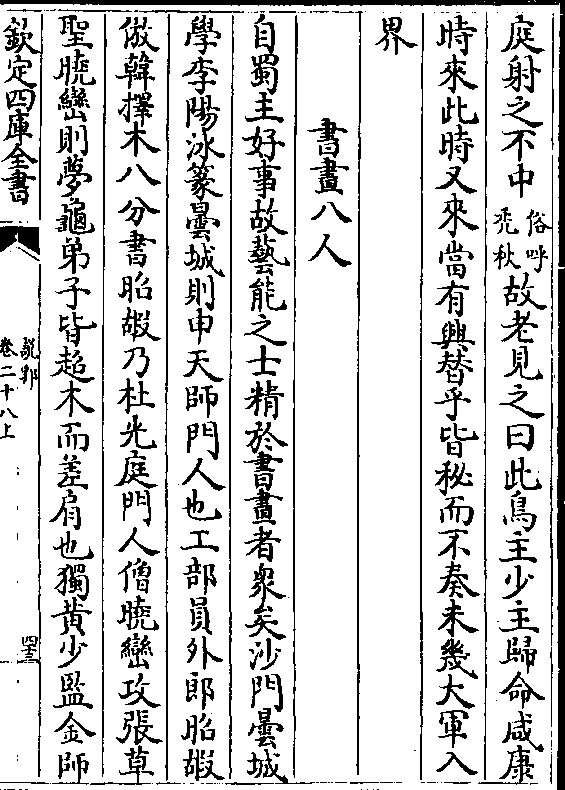 庭射之不中俗呼禿秋故老見之曰此鳥主少主歸命咸康
時來此時又來當有興替乎皆秘而不奏未幾大軍入
界
書畫八人
自蜀主好事故藝能之士精於書畫者衆矣沙門曇域
學李陽冰篆曇域則申天師門人也工部員外郎昭嘏
倣韓擇木八分書昭嘏乃杜光庭門人僧曉巒攻張草
聖曉巒則夢龜弟子皆超木而差肩也獨黄少監金師
欽定四庫全書
說郛
卷二十八上
四三